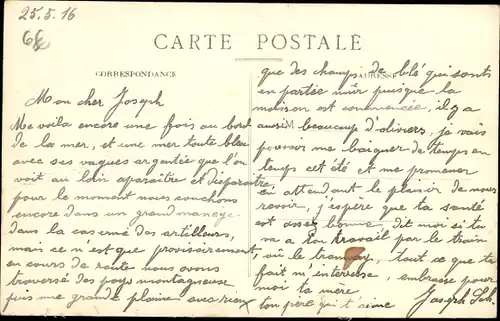 25.5.16
68
CARTE POSTALE
CORRESPONDANCE
ADRESSE
Mon cher Joseph
Me voila encore une fois au bord
de la mer, et une mer toute bleu
avec ses vagues argentée que l'on
voit au loin aparaitre et disparaitre
pour le moment nous couchons
encore dans un grand manege
dans la caserne des artilleurs,
mais ce n'est que provisoirement,
en cours de route nous avons
traversé des pays montagneuse
puis une grande plaine avec rien
que des champs de blé qui sont
en partie mûr puisque la
moison est commencée, il y a
aussi beaucoup d'oliviers, je vais
pouvoir me baigner de temps en
temps cet été et me promener
en attendant le plaisir de nous
revoir, j'espère que ta santé
est assez bonne dit moi si tu
va a ton travail par le train
ou le tramway, tout ce que tu
fait m'interesse, embrasse pour
moi ta mère
ton père qui t'aime
Joseph